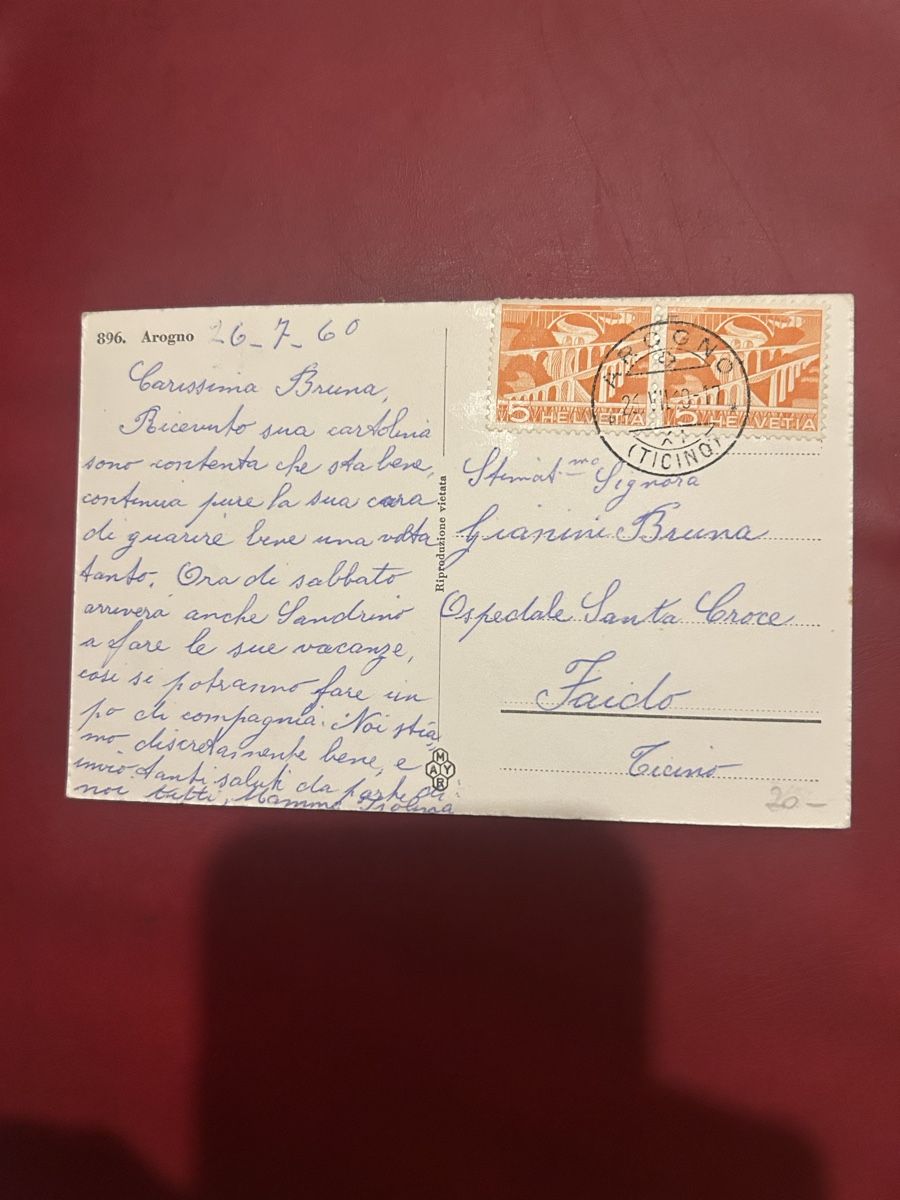 896. Arogno 26-7-60
Carissima Bruna,
Ricevuto sua cartolina
sono contenta che sta bene,
continua pure la sua cura
di guarire bene una volta
tanto. Ora di sabbato
arriverà anche Sandrino
a fare le sue vacanze,
così si potranno fare un
po di compagnia. Noi stia
mo discretamente bene, e
invio tanti saluti da parte di
noi tutti, Mamma
Riproduzione vietata
MAYR
5 HELVETIA
5 HELVETIA
AROGNO
(TICINO)
Stimat.ma Signora
Gianini Bruna
Ospedale Santa Croce
Faido
Ticino
20-